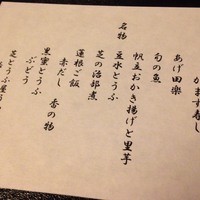 かます寿し
あげ田楽
旬の魚
帆立おかき揚げと里芋
名物 豆水とうふ
芝の治部煮
蓮根ご飯
赤だし 香の物
黒蜜とうふ
ぶどう
芝とうふ屋う